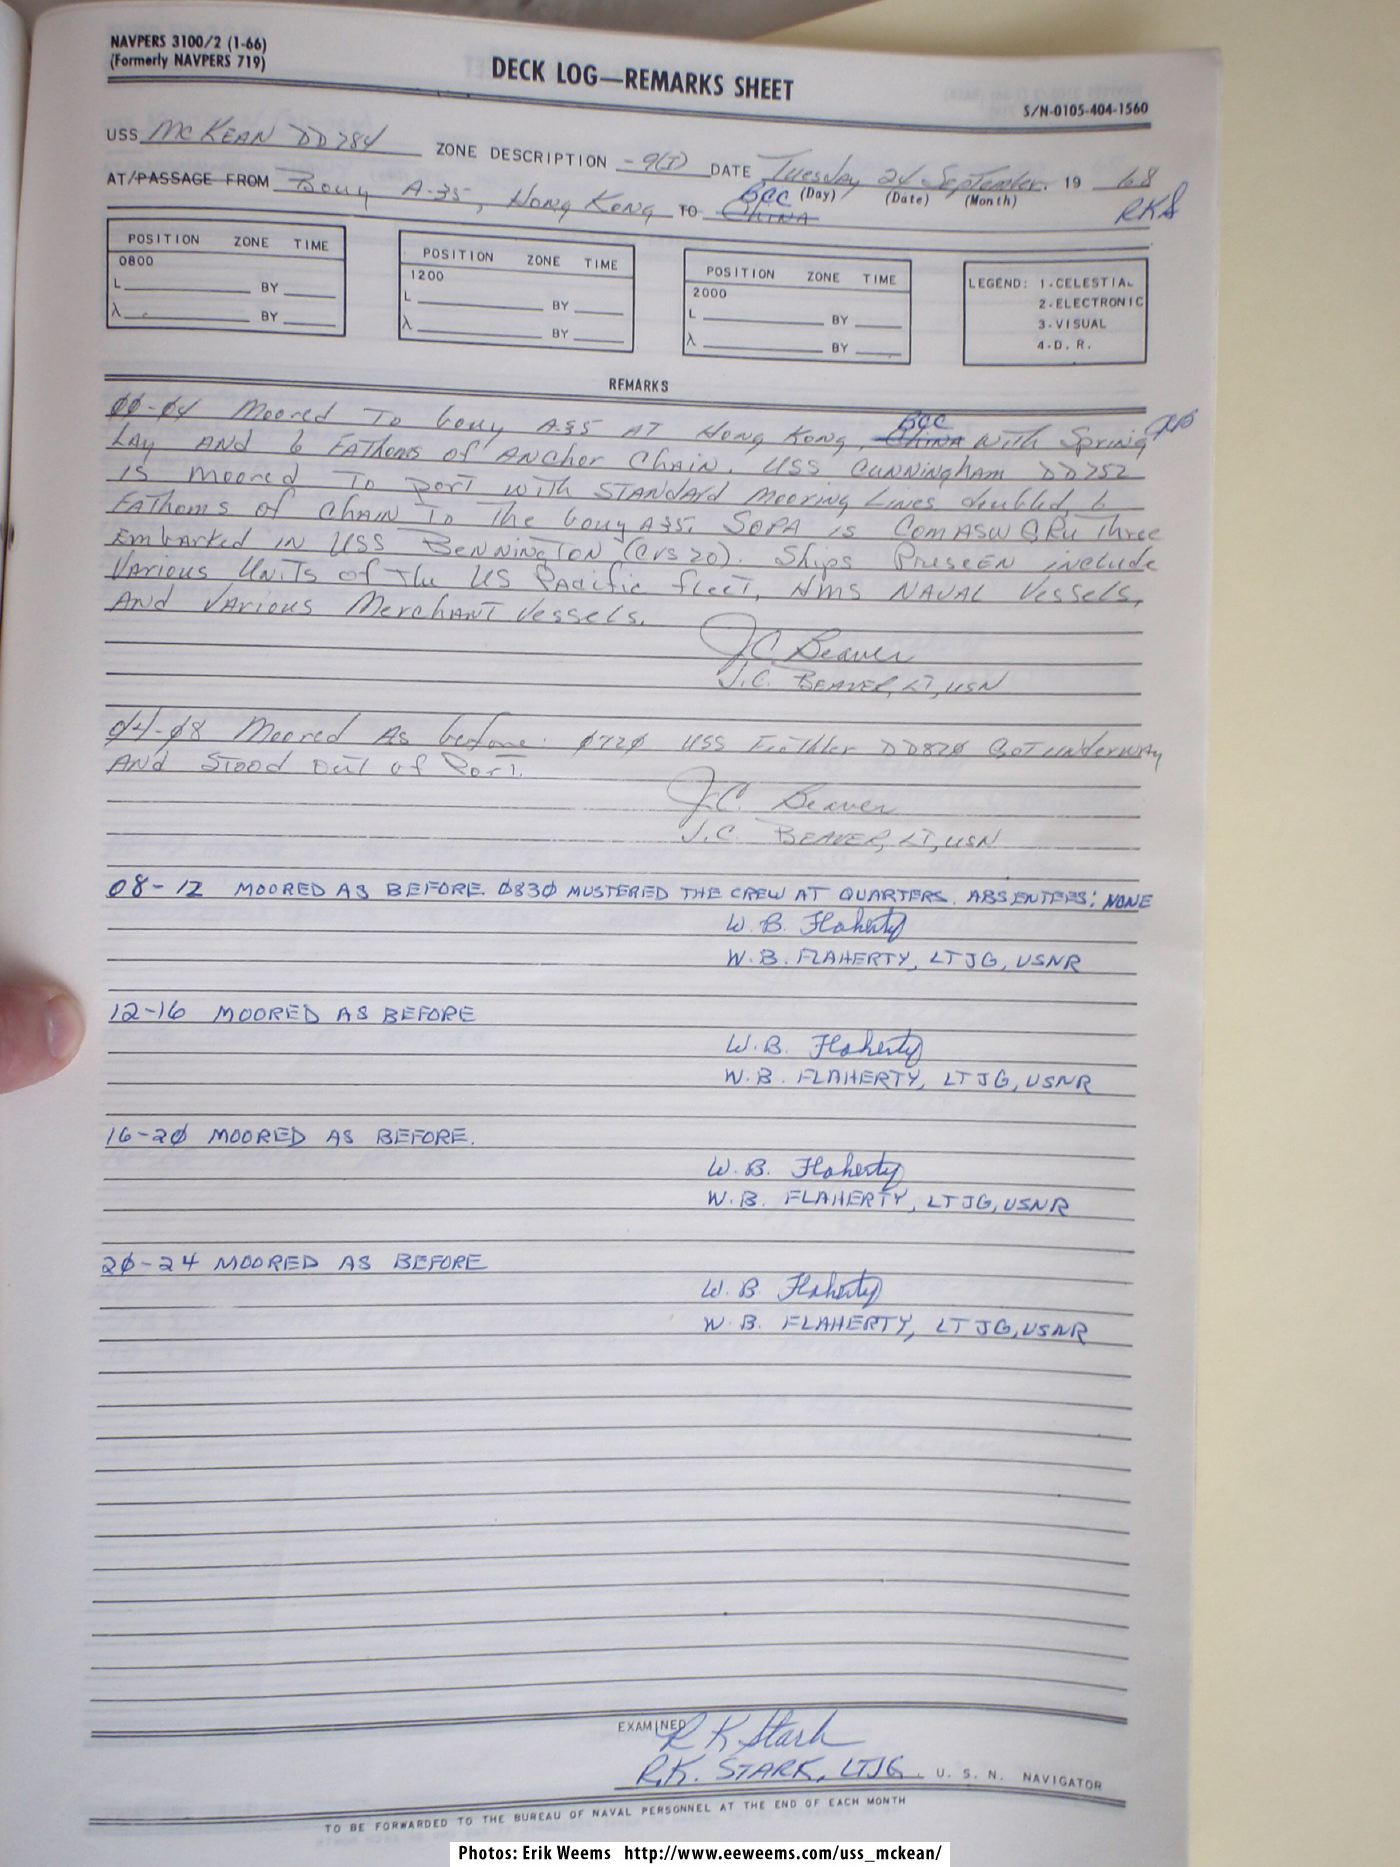 NAVPERS 3100/2 (1-66)
(Formerly NAVPERS 719)
DECK LOG—REMARKS SHEET
S/N-0105-404-1560
USS McKEAN DD784 ZONE DESCRIPTION -9(I) DATE Tuesday 24 September 19 68
(Day) (Date) (Month)
AT/PASSAGE FROM Bouy A-35, Hong Kong TO CHINA BCC RKS
POSITION ZONE TIME
0800
L BY
λ BY
POSITION ZONE TIME
1200
L BY
λ BY
POSITION ZONE TIME
2000
L BY
λ BY
LEGEND: 1-CELESTIAL
2-ELECTRONIC
3-VISUAL
4-D. R.
REMARKS
ØØ-Ø4 Moored To bouy A35 AT Hong Kong, China BCC with Spring
Lay AND 6 FAThoms of ANchor Chain. USS CUNNINGham DD752
is moored To port with STANdard mooring Lines doubled, 6
FAThoms of chain To The bouy A35. SOPA is ComASWGRu Three
Embarked IN USS BENNINgTON (CVS20). Ships PreseEN include
VArious UNiTs of The US PAcific fleeT, HMS NAVAL Vessels,
AND VArious MerchANT Vessels.
J.C. Beaver
J.C. BEAVER, LT, USN
Ø4-Ø8 Moored As before. Ø72Ø USS DD82Ø GoT underwAy
AND STood ouT of PorT.
J.C. Beaver
J.C. BEAVER, LT, USN
08-12 MOORED AS BEFORE. Ø83Ø MUSTERED THE CREW AT QUARTERS. ABSENTEES: NONE
W. B. Flaherty
W. B. FLAHERTY, LTJG, USNR
12-16 MOORED AS BEFORE
W. B. Flaherty
W. B. FLAHERTY, LTJG, USNR
16-2Ø MOORED AS BEFORE.
W. B. Flaherty
W. B. FLAHERTY, LTJG, USNR
2Ø-24 MOORED AS BEFORE
W. B. Flaherty
W. B. FLAHERTY, LTJG, USNR
EXAMINED
R K Stark
R.K. STARK, LTJG U. S. N. NAVIGATOR
TO BE FORWARDED TO THE BUREAU OF NAVAL PERSONNEL AT THE END OF EACH MONTH
Photos: Erik Weems http://www.eeweems.com/uss_mckean/